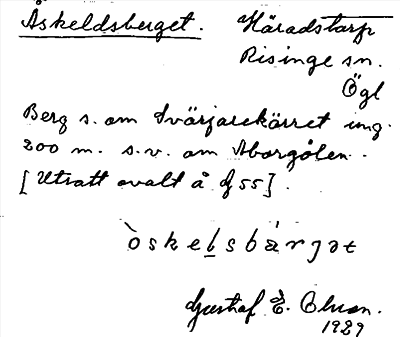 Åskeldsberget. Häradstorp
Risinge sn.
Ögl
Berg s. om Svärjarekärret ung.
200 m. s.v. om Aborgölen.
[Uttalt ovalt å df 55].
òskeḷsbàrjət
Gustaf E. Olsson.
1929